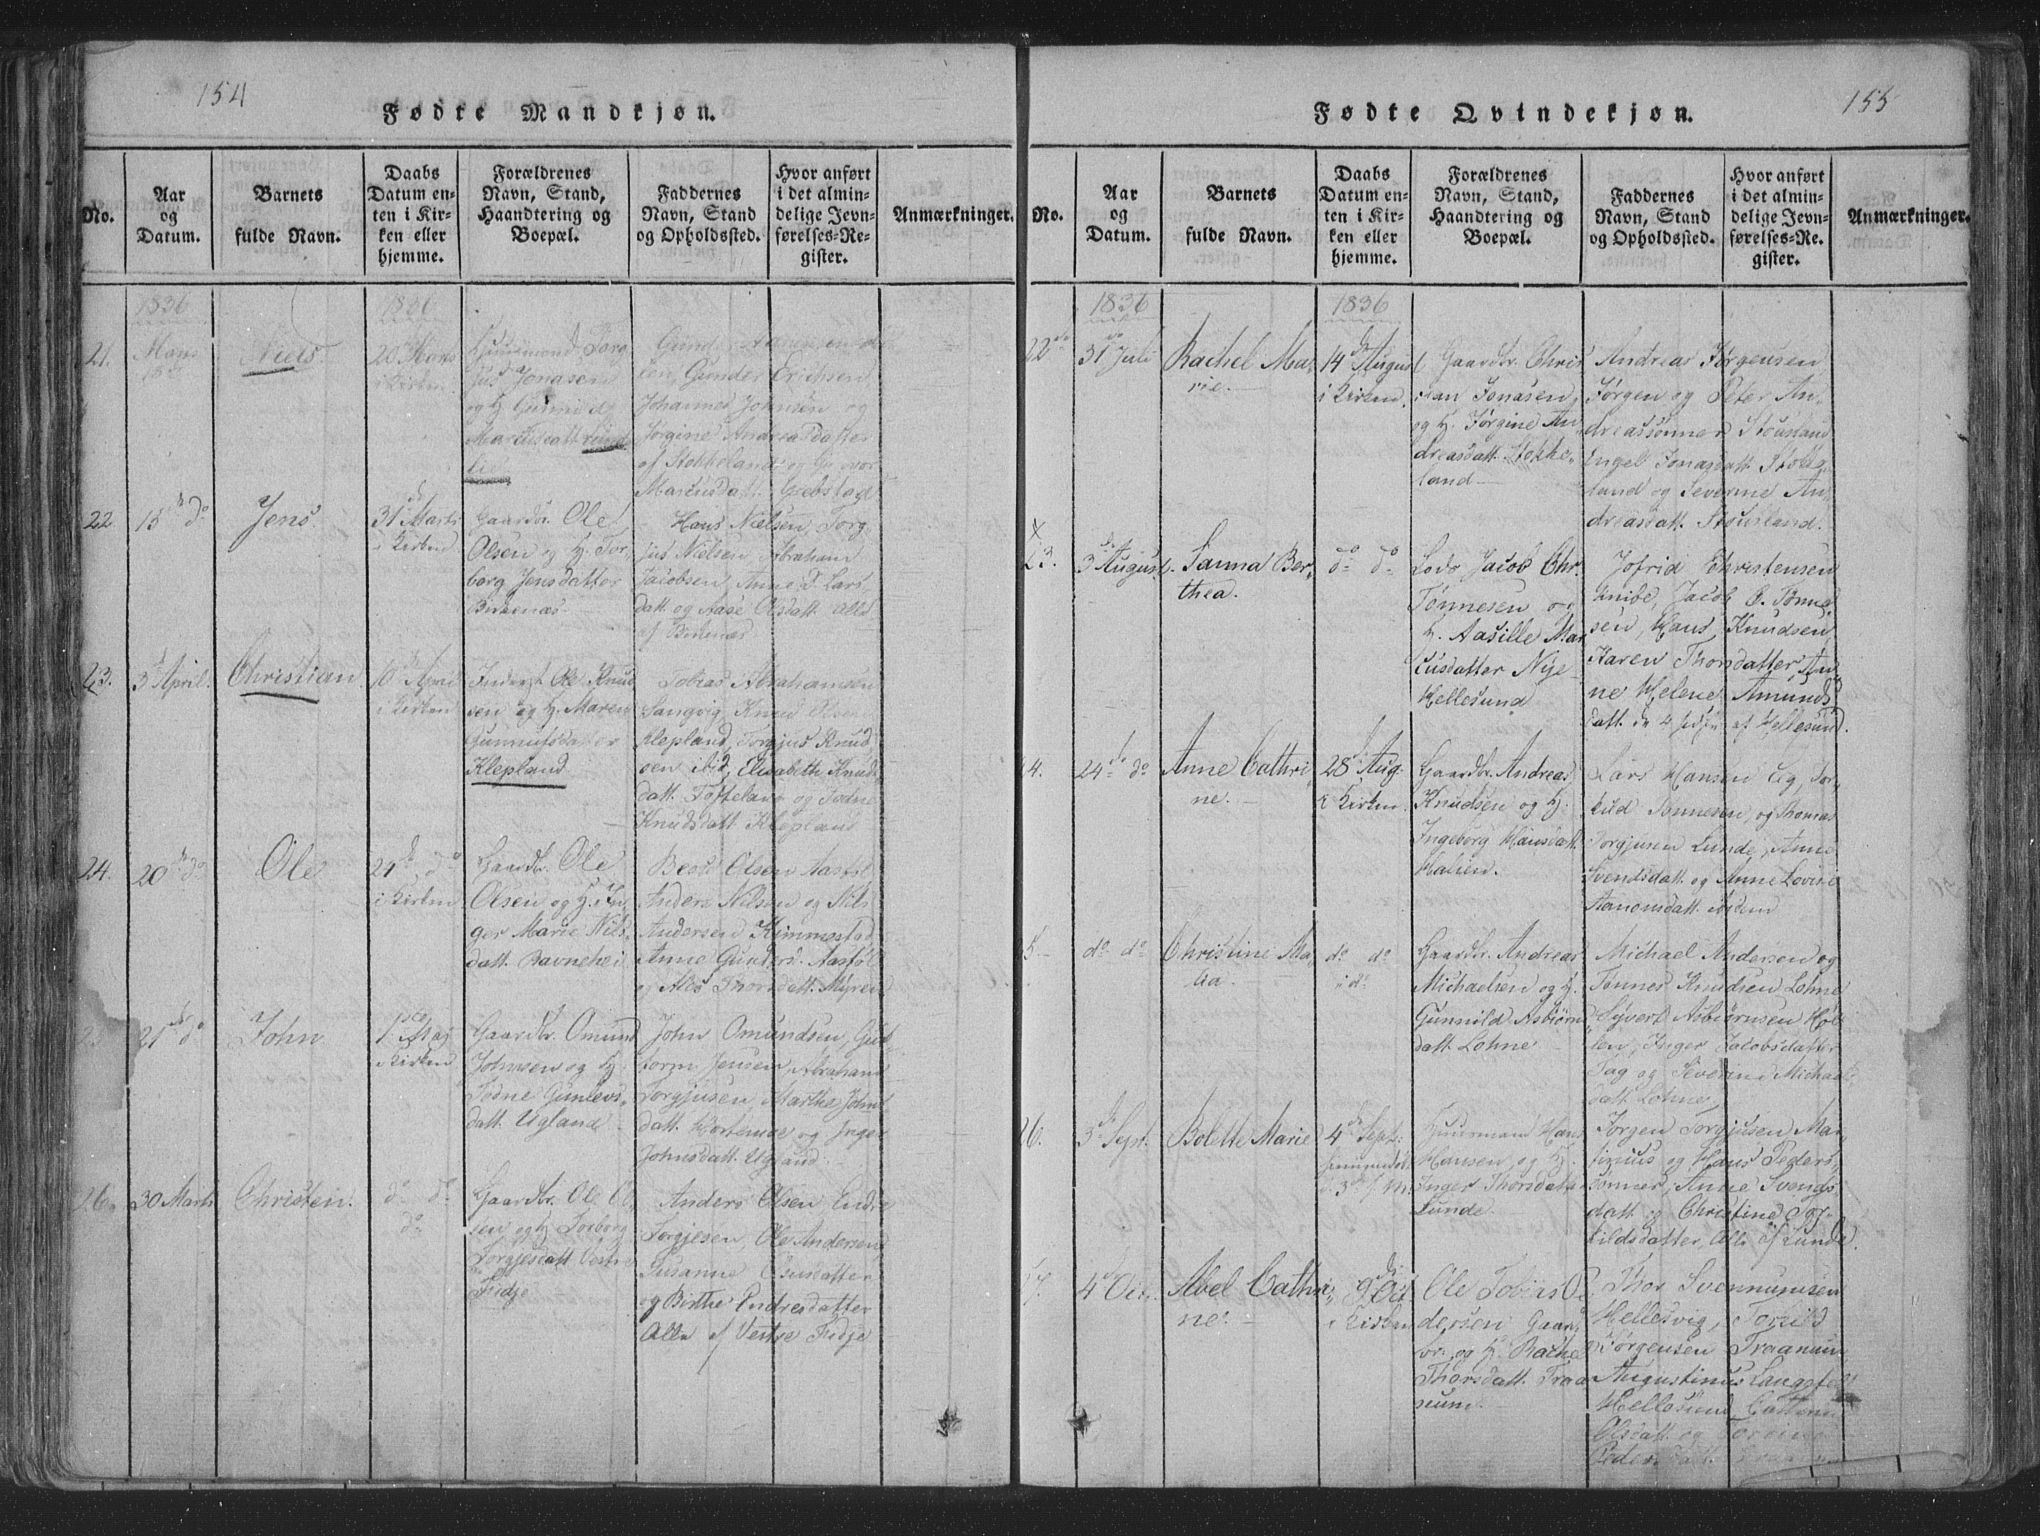 154
Fødte Mandkjøn.
No.
Aar
og
Datum.
Barnets
fulde Navn.
Daabs
Datum en-
ten i Kir-
ken eller
hjemme.
Forældrenes
Navn, Stand,
Haandtering og
Boepæl.
Faddernes
Navn, Stand
og Opholdssted.
Hvor anført
i det almin-
delige Jevn-
førelses-Re-
gister.
Anmærkninger.
1836
1836
21.
Mars
Niels
20 Mars
i Kirken
Huusmand Torg-
jus Jonasen
og H. Gunni
Marcusdatt Lund-
lie
Gunder
sen, Gunder Erichsen
Johannes Johnsen og
Jørgine Andreasdatter
af Stokkeland og
Marcusdatt. Grebstad
22
15 do
Jens
31 Marts
i Kirken
Gaardbr. Ole
Olsen og H. Tor-
borg Jensdatter
Birkenæs
Hans Nielsen, Torg-
jus Nielsen, Abraham
Jacobsen, Anne Lars-
datt. og Aase Olsdatt. alle
af Birkenæs
23.
3 April.
Christian
10 April
i Kirken
Inderst Ole Knud-
sen og H. Maren
Gunnufsdatter
Klepland
Tobias Abrahamsen
Langvig, Knud Olsen
Klepland, Torgjus Knud-
sen ibid, Elisabeth Knuds-
datt. Tofteland og Todne
Knudsdatt. Klepland
24.
20 do
Ole
24 do
i Kirken
Gaardbr. Ole
Olsen og H. In-
ger Marie Nils-
datt. Ravnehei
Olsen Aasføl
Anders Nilsen og Nils
Andersen Kimmestad
Anne Gunders. Aasføl
og Thorsdatt. Myren
21 do
John
1 Maj
i Kirken
Gaardbr. Omund
Johnsen og H.
Todne Gunlevs-
datt. Ugland
John Omundsen, Gut-
torm Jensen, Abraham
Torgjusen, Marthe Johns-
datt. og Inger
Johnsdatt. Ugland
26.
30 Marts
Christen.
do do
do
Gaardbr. Ole Ol-
sen og H. Torborg
Torgjesdatt. Vestre
Fidje
Anders Olsen, Endre
Torgjesen, Ole Andersen
Susanne Olsdatter
og Birthe Endresdatter
Alle af Vestre Fidje
155
Fødte Qvindekjøn.
No.
Aar
og
Datum.
Barnets
fulde Navn.
Daabs
Datum en-
ten i Kir-
ken eller
hjemme.
Forældrenes
Navn, Stand,
Haandtering og
Boepæl.
Faddernes
Navn, Stand
og Opholdssted.
Hvor anført
i det almin-
delige Jevn-
førelses-Re-
gister.
Anmærkninger.
1836
1836
22
31 Juli
Rachel Ma-
rie.
14 August
i Kirken.
Gaardbr. Chris-
tian Jonasen,
og H. Jørgine An-
dreasdatt. Stokke-
land
Andreas Jørgensen
Jørgen og Peter An-
dreassønner Stousland
Engel Jonasdatt. Stokke-
land og Severine An-
dreasdatt. Stousland.
x
23.
3 August.
Sanna Ber-
thea.
do do
Lods Jacob Chr.
Tønnesen og
H. Aasille Mar-
cusdatter Nye
Hellesund
Jofrid Christensen
Knibe, Jacob C. Tønne-
sen, Hans Knudsen
Karen Thorsdatter, An-
ne Helene Amunds-
datt. de 4 af Hellesund.
4.
24 do
Anne Cathri-
ne.
28 Aug.
i Kirken.
Gaardbr. Andreas
Knudsen og H.
Ingeborg Hansdatt.
Halien.
Lars Hansen Eeg, Tor-
kild Tønnesen, og Thomas
Torgjusen Lunde, Anne
Svendsdatt. og Anne Lovise
Aanonsdatt. ibidem
5.
do do
Christine Ma-
lia.
do do
i do
Gaardbr. Andreas
Michaelsen og H.
Gunnild Asbiørns-
datt. Lohne
Michael Andersen og
Tønnes Knudsen Lohne
Syvert Asbiørnsen Høl-
len, Inger Jacobsdatter
Tag og Severine Michaels-
datt. Lohne.
26.
3 Sept.
Bolette Marie
4 Sept.
Huusmand Hans
Hansen og H.
Inger Thorsdatter
Lunde.
Jørgen Torgjusen Mar-
tinius og Hans Peders-
sønner, Anne Svends-
datt. og Christine Tor-
kildsdatter, alle af Lunde.
7.
4 Oct.
Abel Cathri-
ne.
9 Oct
i Kirken
Ole Tobias Pe-
dersen Gaard-
br. og H. Rachel
Thorsdatt. Traa-
num.
Thor Svennumsen
Hellesvig, Torkild
Jørgensen Traanum
Augustinus Langfeldt
Hellesund,
Olsdatt. og
Pedersdatt. Traanum